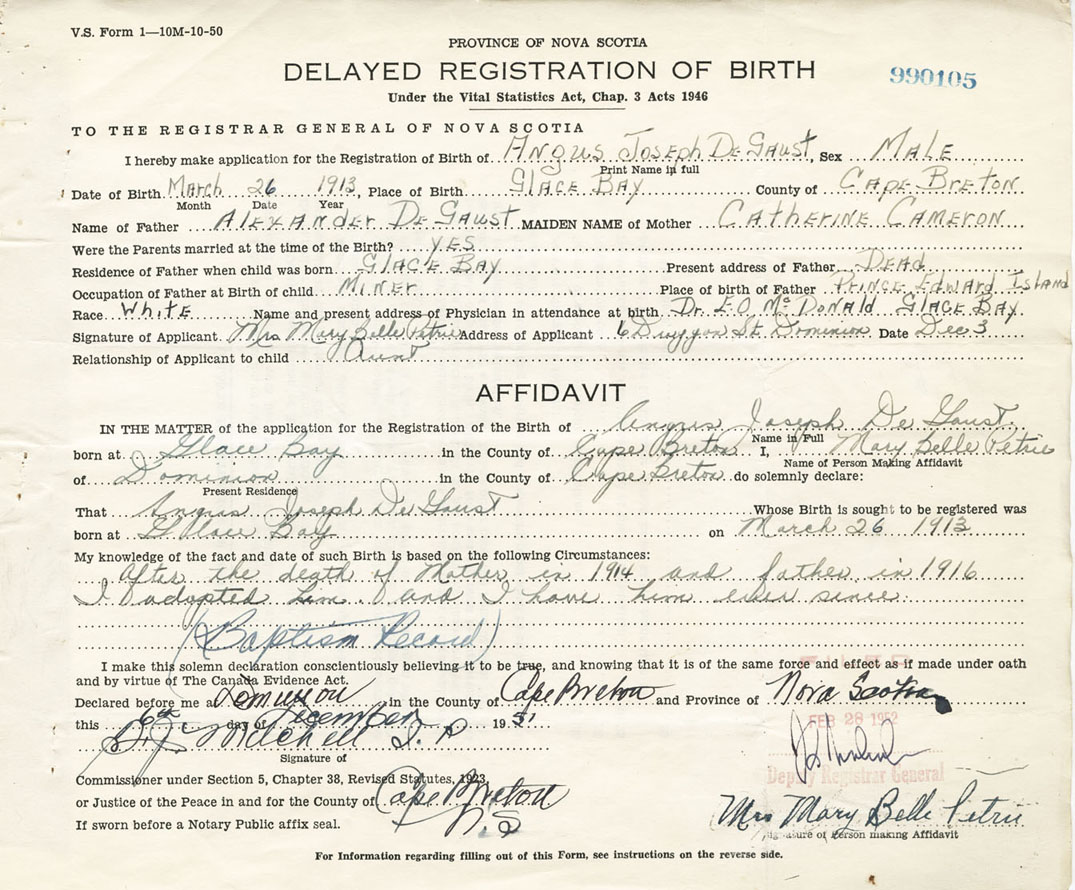 V.S. Form 1—10M-10-50
PROVINCE OF NOVA SCOTIA
DELAYED REGISTRATION OF BIRTH
990105
Under the Vital Statistics Act, Chap. 3 Acts 1946
TO THE REGISTRAR GENERAL OF NOVA SCOTIA
I hereby make application for the Registration of Birth of Angus Joseph De Gaust Sex Male
Print Name in full
Date of Birth March 26 1913, Place of Birth Glace Bay County of Cape Breton
Month Date Year
Name of Father Alexander De Gaust MAIDEN NAME of Mother Catherine Cameron
Were the Parents married at the time of the Birth? Yes
Residence of Father when child was born Glace Bay Present address of Father Dead
Occupation of Father at Birth of child Miner Place of birth of Father Prince Edward Island
Race White Name and present address of Physician in attendance at birth Dr. E.O. McDonald Glace Bay
Signature of Applicant Mrs Mary Belle Petrie Address of Applicant 6 St. Dominion Date Dec 3
Relationship of Applicant to child Aunt
AFFIDAVIT
IN THE MATTER of the application for the Registration of the Birth of Angus Joseph De Gaust
Name in Full
born at Glace Bay in the County of Cape Breton I, Mary Belle Petrie
Name of Person Making Affidavit
of Dominion in the County of Cape Breton do solemnly declare:
Present Residence
That Angus Joseph De Gaust Whose Birth is sought to be registered was
born at Glace Bay on March 26 1913
My knowledge of the fact and date of such Birth is based on the following Circumstances:
After the death of Mother in 1914 and father in 1916
I adopted him and I have him ever since
(Baptism Record)
I make this solemn declaration conscientiously believing it to be true, and knowing that it is of the same force and effect as if made under oath
and by virtue of The Canada Evidence Act.
Declared before me at Dominion in the County of Cape Breton and Province of Nova Scotia
this 6th day of December 1951
FEB 28 1952
Mitchell J. P
Signature of
Deputy Registrar General
Commissioner under Section 5, Chapter 38, Revised Statutes, 1923,
or Justice of the Peace in and for the County of Cape Breton
N.S
Mrs Mary Belle Petrie
Signature of Person making Affidavit
If sworn before a Notary Public affix seal.
For Information regarding filling out of this Form, see instructions on the reverse side.